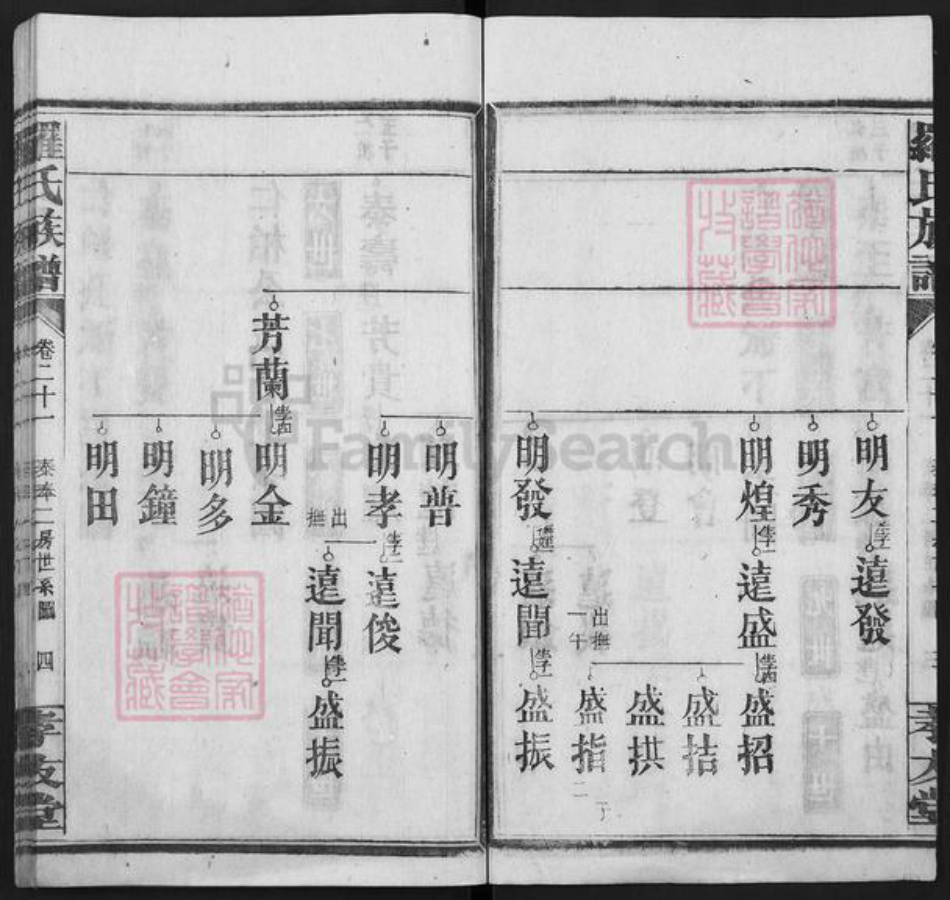 羅氏族譜
明友
子一
遠發
明秀
明煌
子一
遠盛
子四
盛招
盛拮
盛拱
盛指
出撫
明發
遠聞
子一
盛振
孝友堂
明普
明孝
子二
遠俊
出撫
遠聞
子一
盛振
芳蘭
子四
明金
明多
明鐘
明田
羅氏族譜
卷二十一
泰奉二房世系圖
四
孝友堂
FamilySearch